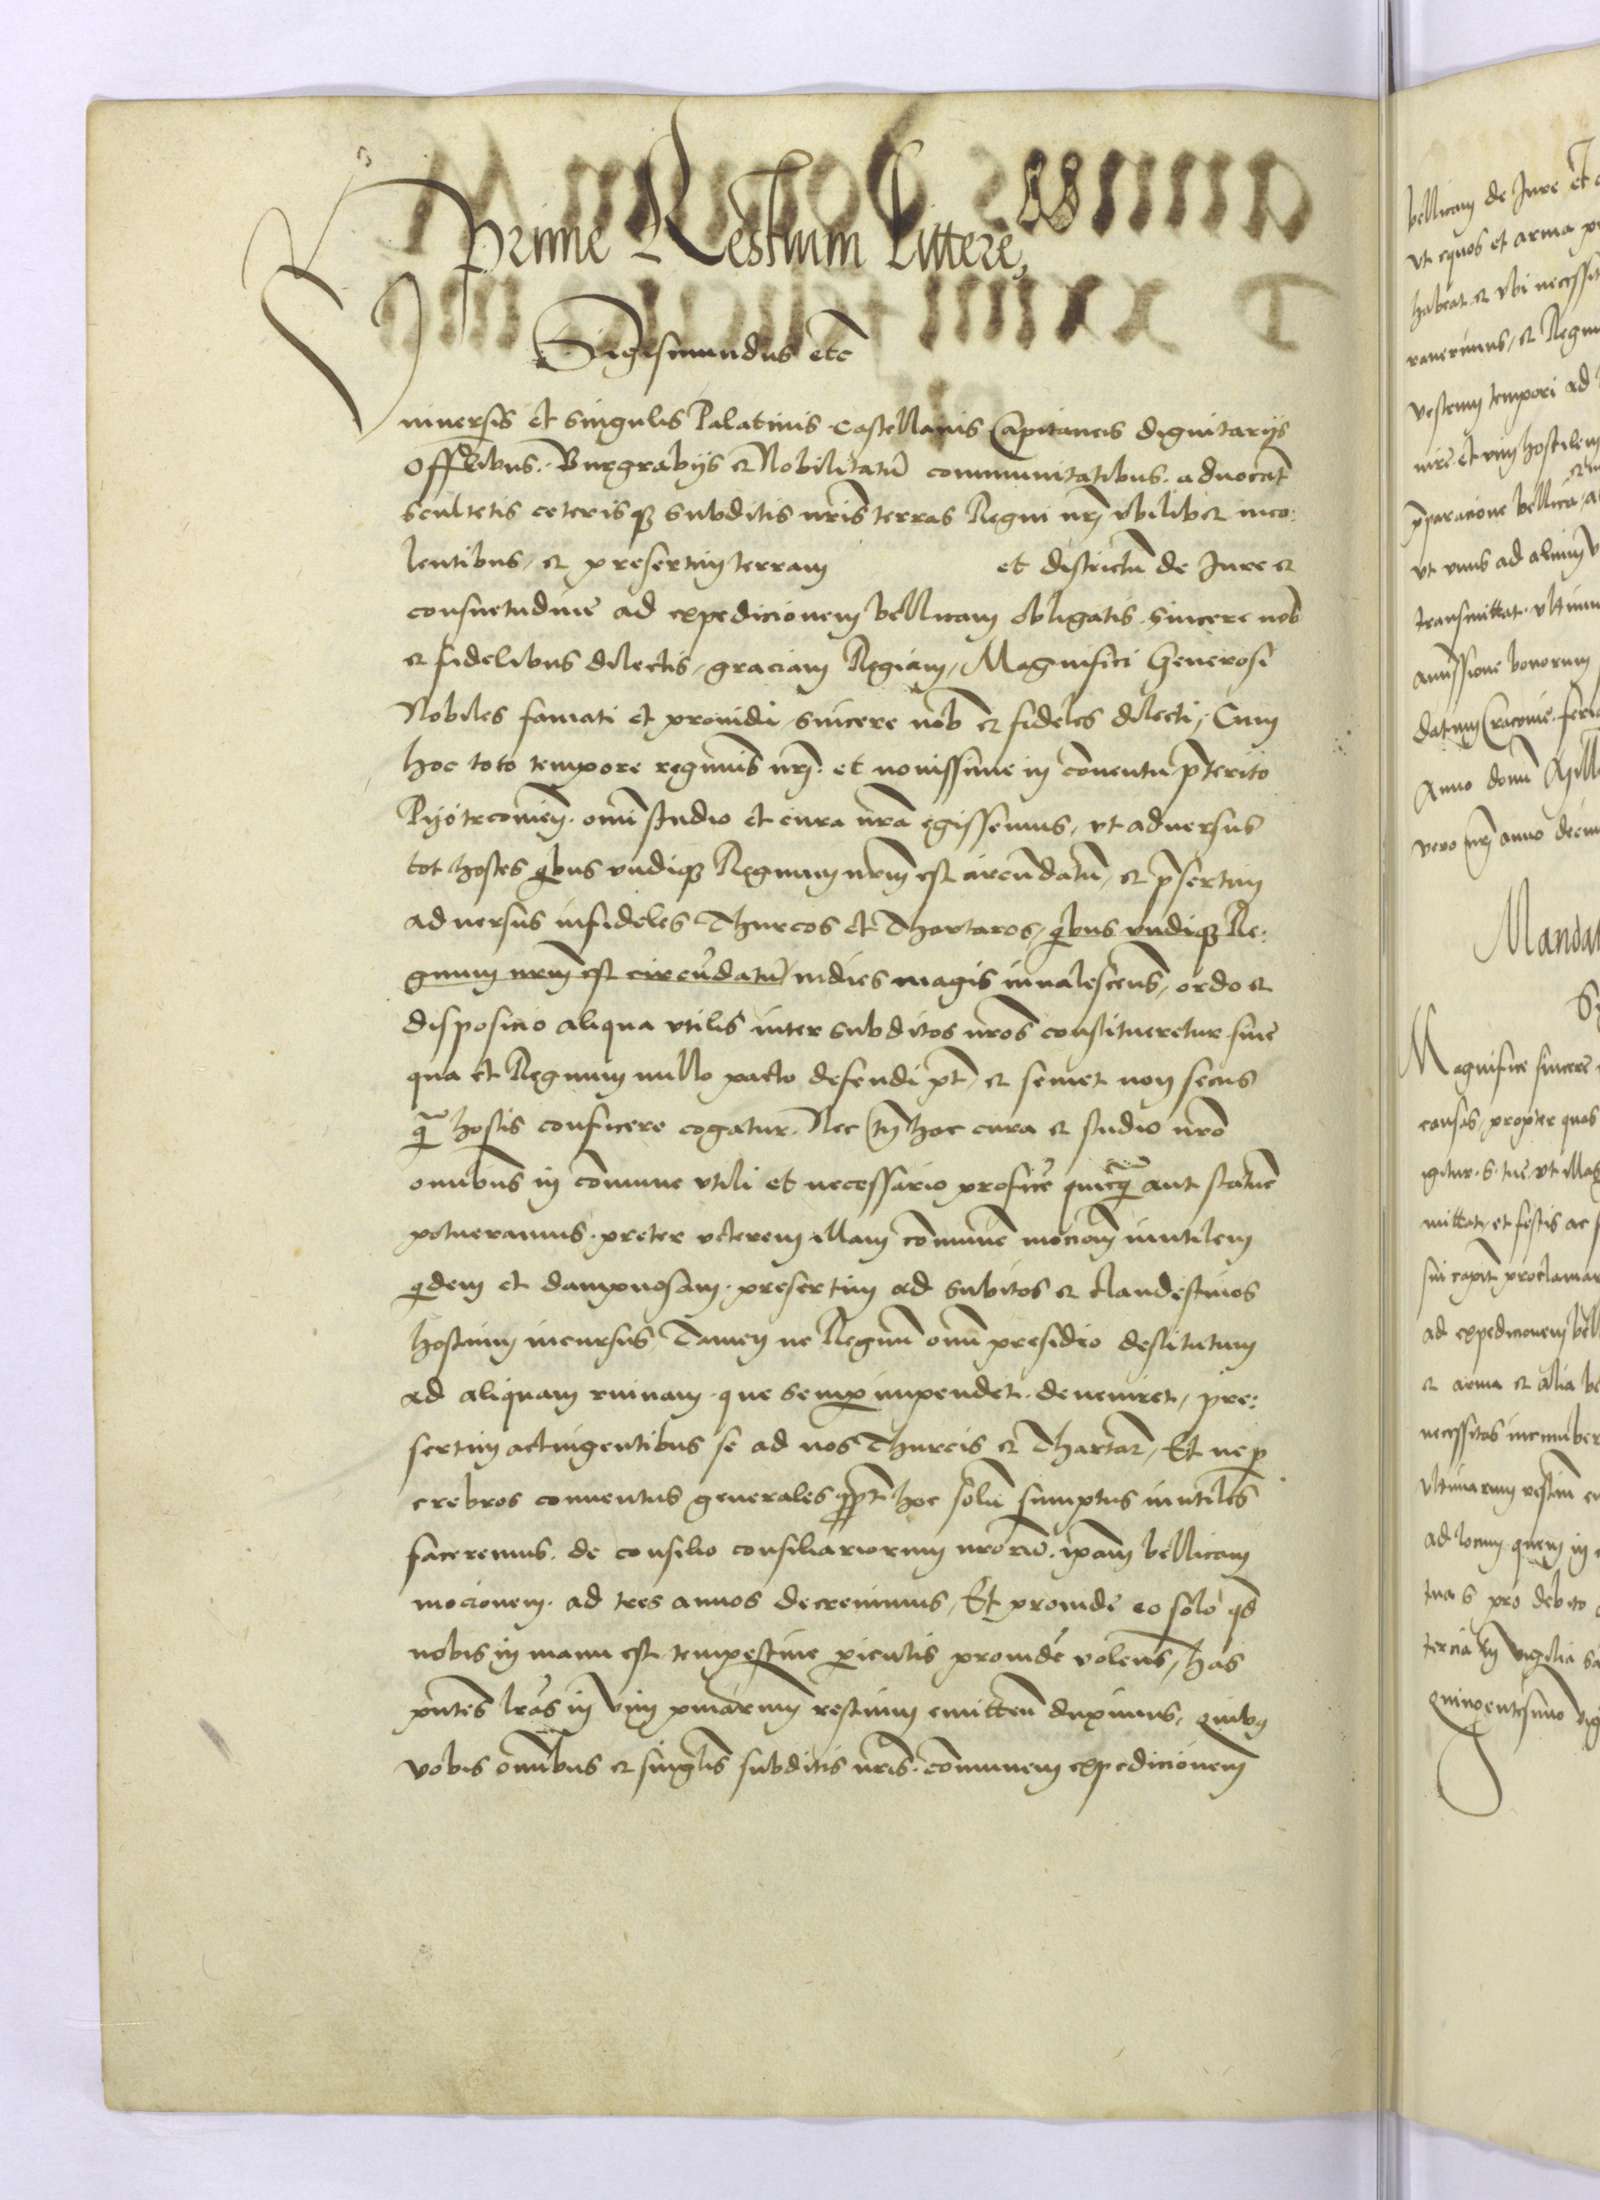 Prime Restium Littere,
Sigismundus etc
Vniuersis et singulis Palatinis Castellanis Capitaneis dignitarijs
Offlibus. Burgrabijs et Nobilitatū communitatibus. aduocat̄
scultetis ceterisqꝫ subditis nr̄is terras Regni nrj̄ vbilibet inco:
lentibus, et presertim terram et districtū de Jure et
consuetudine ad expedicionem bellicam obligatis. sincere nob̄
et fidelibus dilectis, graciam Regiam, Magnifici Generosi
Nobiles famati et prouidi, sincere nob̄ et fideles dilecti, Cum
hoc toto tempore regiminis nrj̄. et nouissime in conuentu p̄terito
Pijotrconieñ. om̄i studio et cura nr̄a egissemus, vt aduersus
tot hostes qbus vndiqꝫ Regnum nrm̄ est circūdatū, et p̄sertim
aduersus infideles Thurcos et Thartaros, qbus vndiqꝫ Re:
gnum nrm̄ est circūdatū, indies magis inualescens, ordo et
disposicio aliqua vtilis inter subditos nr̄os constitueretur. sine
qua et Regnum nullo pacto defendi pt̄, et semet non secus
q̄ hostis conficere cogatur. Nec tn̄ hoc cura et studio nr̄o
om̄ibus in com̄une vtili et necessario proficē quicq̄ aut statuē
potueramus. preter veterem illam com̄unē mocionem inutilem
qdem et dampnosam. presertim ad subitos et clandestinos
hostium incursus, Tamen ne Regnū om̄i presidio destitutum
ad aliquam ruinam. que semp̄ impendet. deueniret, pre:
sertim actingentibus se ad nos Thurcis et Thartar̄, Et ne p
crebros conuentus generales ppt̄ hoc solū sumptus inutiles
faceremus. de consilio consiliariorum nr̄orū. ip̄am bellicam
mocionem. ad tres annos decreuimus, Et proinde eo solo qd̄
nobis in manu est tempestiue periculis prouidē volens, has
pn̄tes lr̄as in vim primarum restium emitten̄ duximus, quibꝫ
vobis om̄ibus et singl̄is subditis nr̄is. com̄unem expedicionem
bellicam de Jure et
vt equos et arma
habeat et vbi necessit
et Regnu
vestem tempori ad
nire et vim hostilem
p̄paracione bellica
vt vnus ad alium
transmittat. vltimu
amissione bonorum
datum Cracouie. feria
Anno domi Mill
vero nrj̄ anno decim
Mandat
Magnifice sincere
causas, propter quas
igitur. S. tue, vt illas
mittat, et festis ac
sui capit̄ proclamar
ad expedicionem bell
et arma et alia be
necessitas incumber
Vltimarum restiū
ad locum quem in
tua S pro debito
tercia in vigilia sa
quingentesimo vig